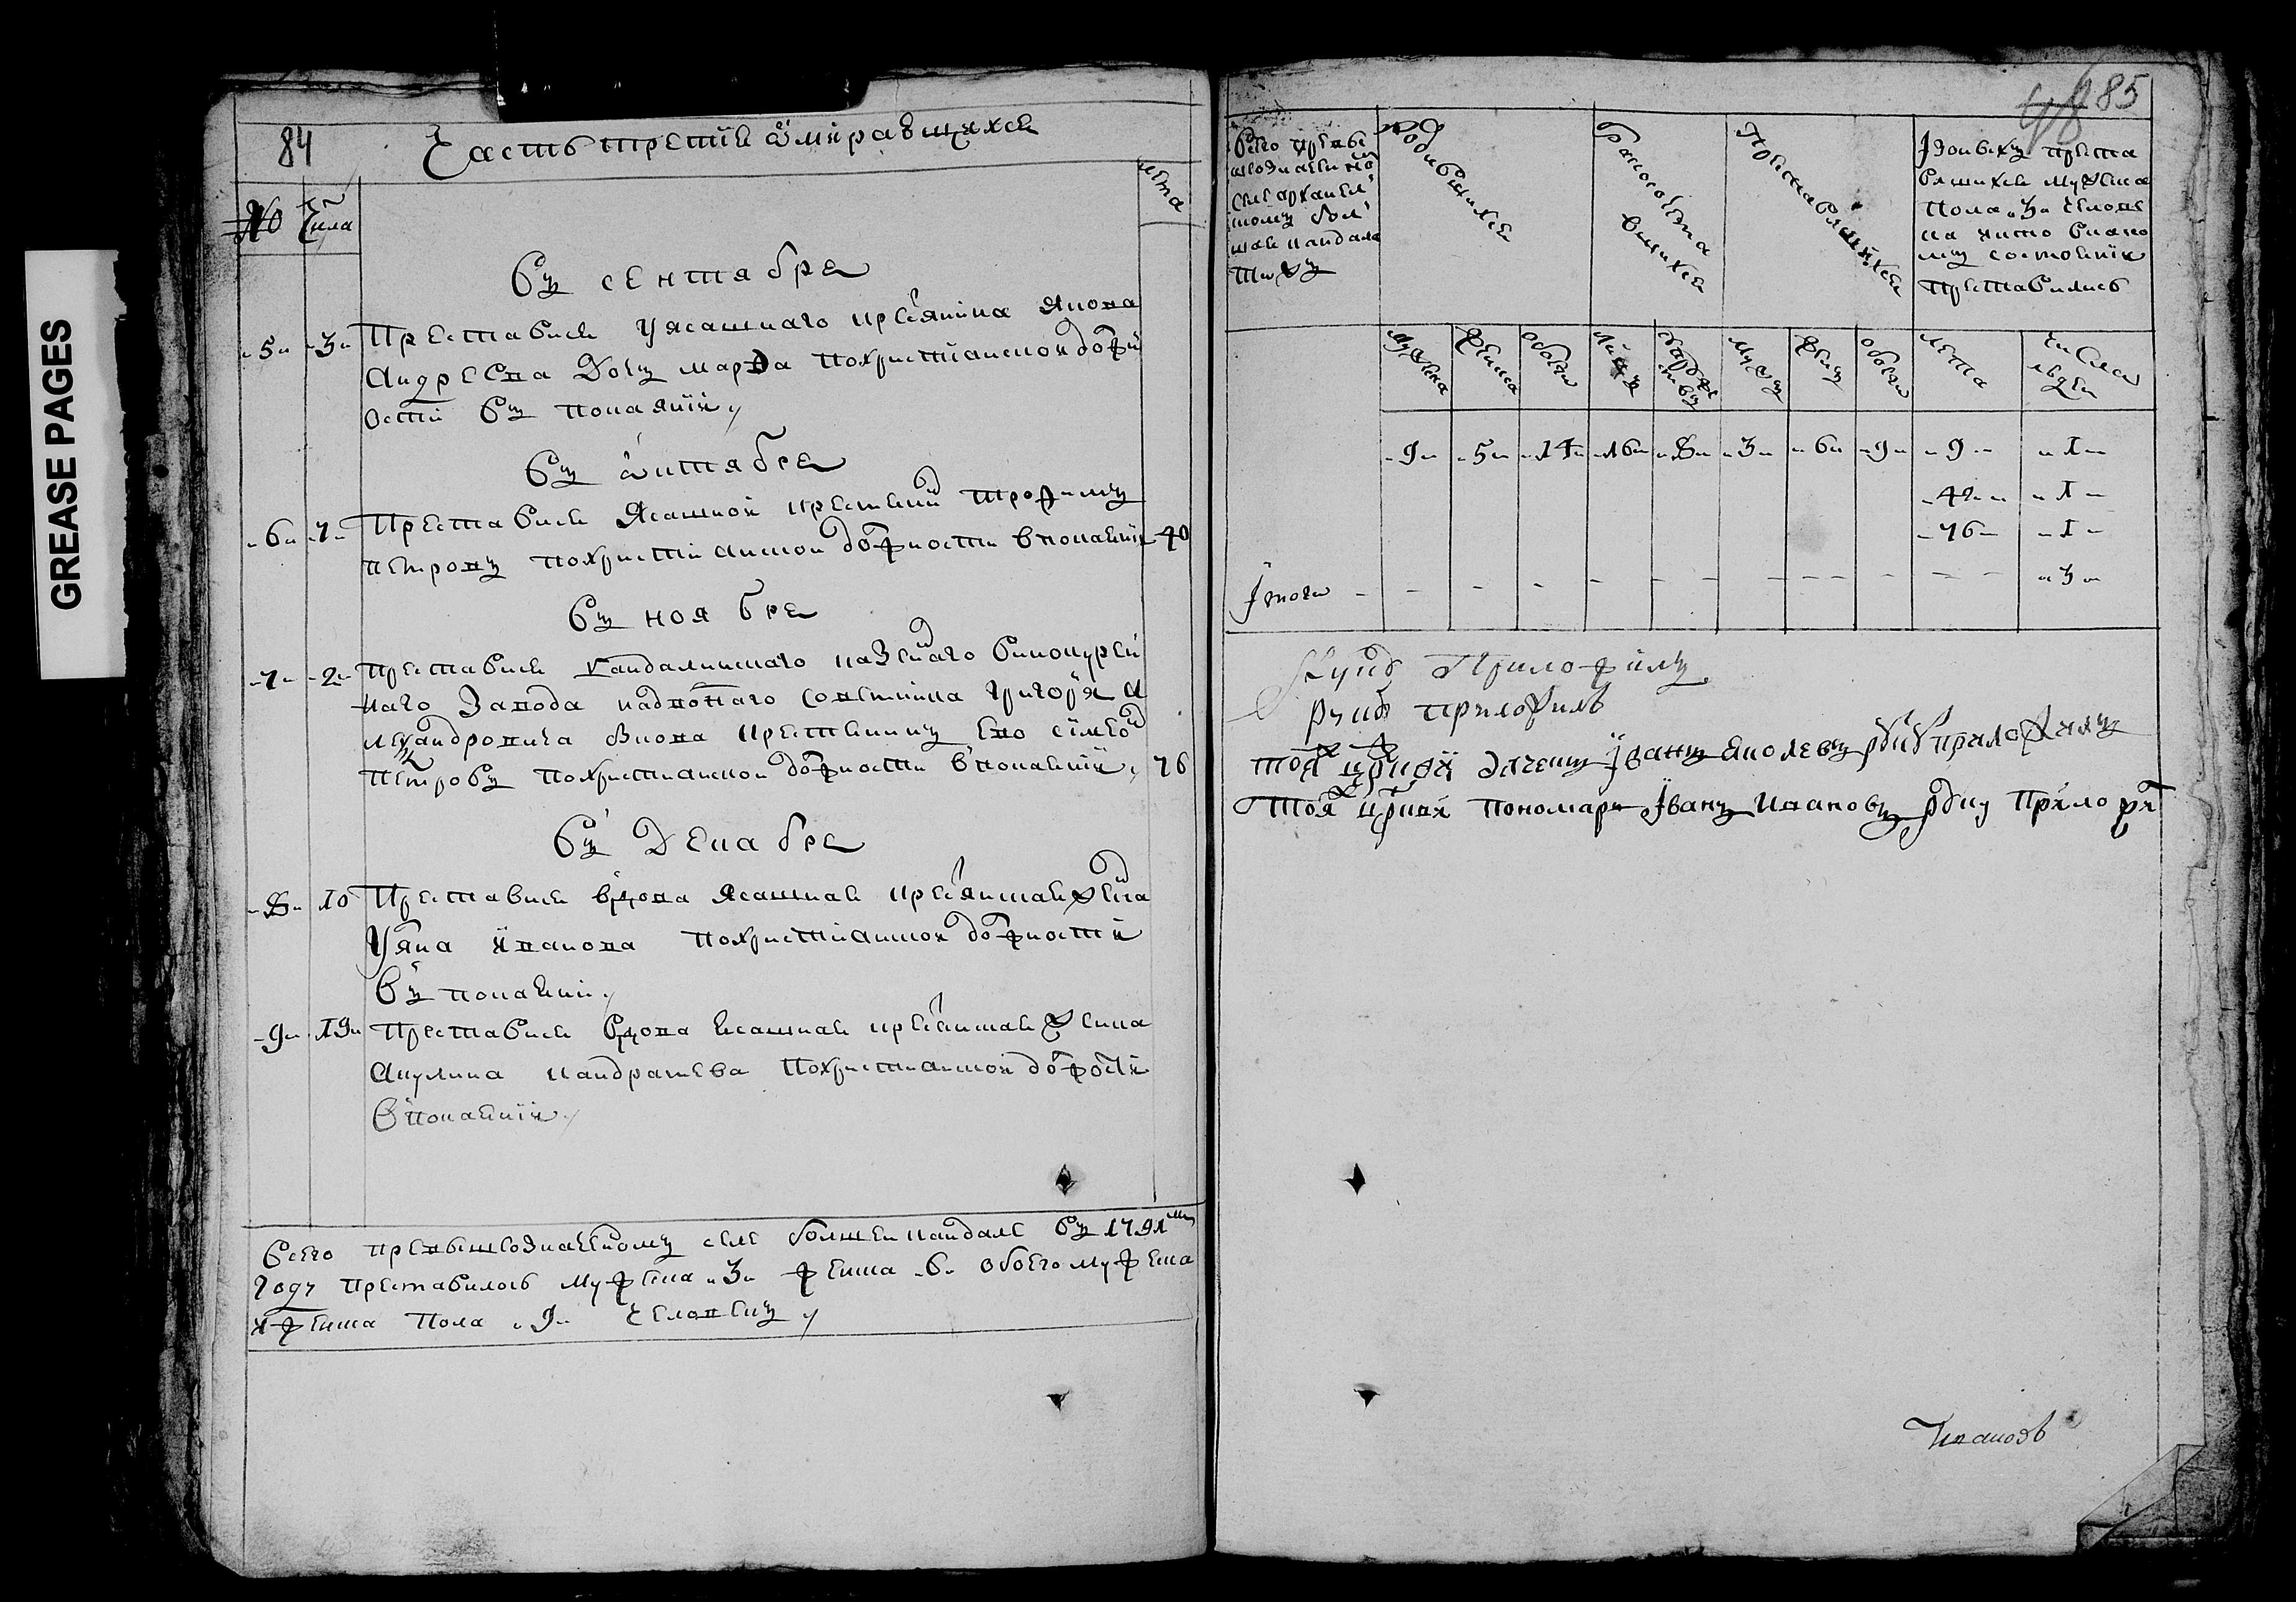 GREASE PAGES
84
Часть третія ѡ умиравшихся
№ Числа
лѣта
Въ сентябрѣ
5 3 Преставися у ясашнаго крестьянина Якова
Андреева дочь Марфа по христианской должн
ости въ покаянїи
Въ ѡктябрѣ
6 7 Преставися ясашной крестьянинъ Трофимъ
Петровъ по христианской должности в покаянїи 40
Въ ноябрѣ
7 2 Преставися Кандалинскаго казеннаго винокурен
наго завода надворнаго советника Григорья А
лександровича крестьянинъ ево Симеонъ
Петровъ по христианской должности в покаянїи 76
Въ декабрѣ
8 10 Преставися вдова ясашная крестьянская жена
Иванова по христианской должности
въ покаянїи
9 19 Преставися вдова ясашная крестьянская жена
Акулина Кандратьева по христианской должности
в покаянїи
Всего при вышеозначенному селе Болшей Кандале въ 1791м
году преставилось мужеска 3 женска 6 обоего мужеска
и женска пола 9 человекъ
85
Всего при вы
шеозначенном
селе Архангел
ском Бол
шая Кандала
тожъ
Родившихся
Бракосочета
вшихся
Преставлшихся
Изо всехъ преста
влшихся мужеска
пола 3 челове
ка чисто в како
мъ состоянїи
преставились
Мужеска Женска обоихъ лицъ браковъ Мужъ Женъ обоихъ лета числа людей
9 5 14 16 8 3 6 9 9 1
42 1
76 1
Итого 3
руку приложилъ
руку приложилъ
тоя церкви дьячекъ Іванъ Яколевъ руку приложилъ
тоя церкви пономарь Іванъ Ивановъ руку приложи
Ивановъ